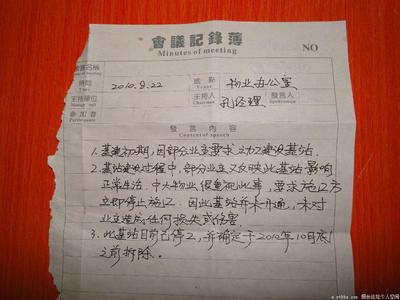 會議記錄簿
Minutes of meeting
NO
會議名稱
時間
Time
2010.9.22
地點
Venue
物业办公室
主持單位
主持人
Chairman
孔经理
發言人
Spokesman
參加者
發言內容
Content of speech
1. 基建初期，因部分业主要求立动工建设基站。
2. 基站建设过程中，部分业主又反映此基站影响
正常生活，中大物业很重视此事，要求施工方
立即停止施工。因此基站并未开通，未对
业主造成任何损失或伤害。
3. 此基站目前已停工，并确定于2010年10月底
之前拆除。